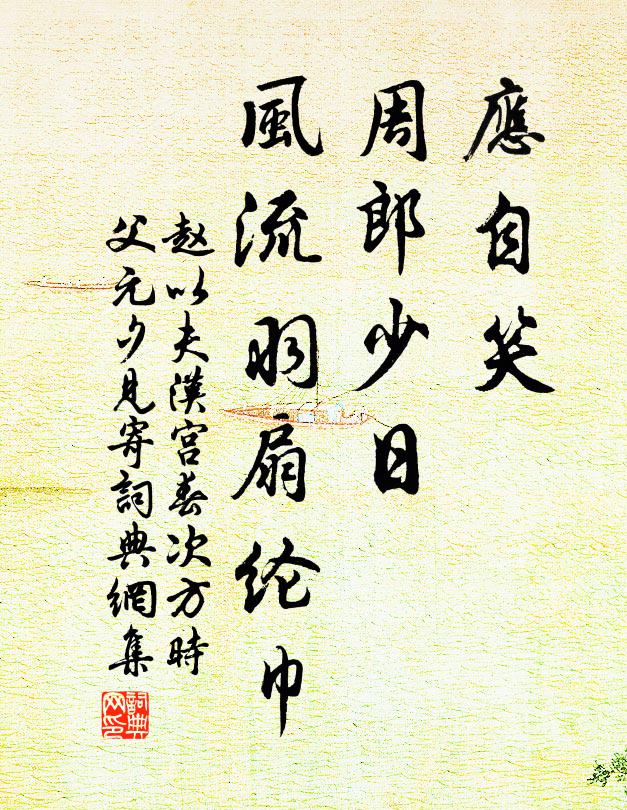 應自笑
周郎少日
風流羽扇纶巾
赵以夫漢宮春次方時
父元夕見寄詞典網集
詞典
网印